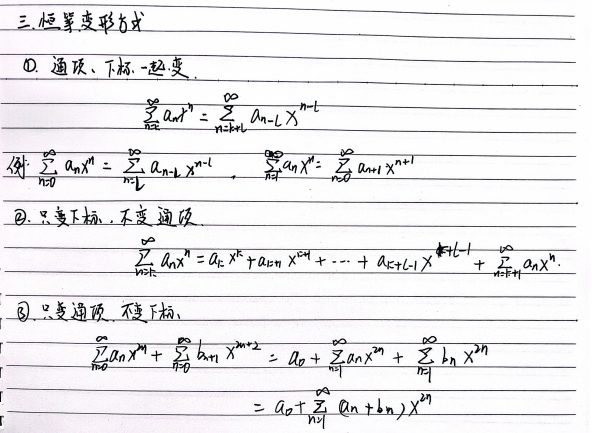 三. 恒等变形方式
①. 通项、下标一起变.
∑_{n=k}^{∞} a_n x^n = ∑_{n=k+l}^{∞} a_{n-l} x^{n-l}
例: ∑_{n=0}^{∞} a_n x^n = ∑_{n=l}^{∞} a_{n-l} x^{n-l} , ∑_{n=1}^{∞} a_n x^n = ∑_{n=0}^{∞} a_{n+1} x^{n+1}
②. 只变下标, 不变通项.
∑_{n=k}^{∞} a_n x^n = a_k x^k + a_{k+1} x^{k+1} + ⋯ + a_{k+l-1} x^{k+l-1} + ∑_{n=k+l}^{∞} a_n x^n.
③. 只变通项 不变下标.
∑_{n=0}^{∞} a_n x^{2n} + ∑_{n=0}^{∞} b_{n+1} x^{2n+2} = a_0 + ∑_{n=1}^{∞} a_n x^{2n} + ∑_{n=1}^{∞} b_n x^{2n}
= a_0 + ∑_{n=1}^{∞} (a_n + b_n) x^{2n}